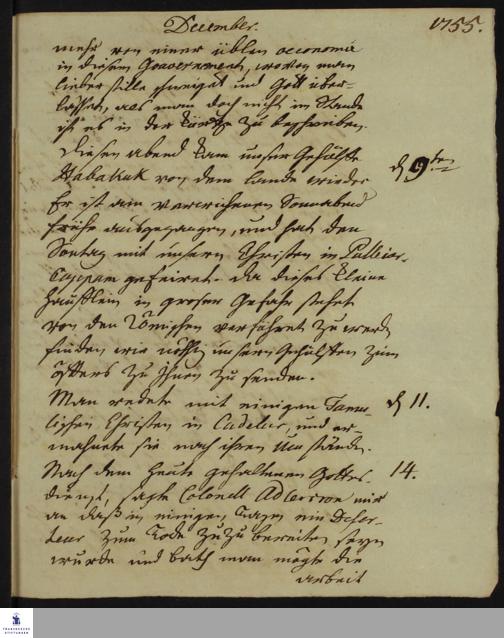 December. 1755.
mehr von einer üblen oeconomie
in diesem Gouvernement, wovon man
lieber stille schweiget und Gott über-
lässet, als man doch nicht im Stande
ist es in der Kürtze zu beschreiben.
Diesen abend kam unser Gehülffe d 9ten
Habakuk von dem Lande wieder
Er ist am verwichenen Sonnabend
frühe ausgegangen, und hat den
Sontag mit unsern Christen in
gefeiret. da dieses kleine
Häufflein in groser Gefahr stehet
von den Römischen verführet zu werden
finden wir nöthig unsern Gehülffen zum
öfftern zu Ihnen zu senden.
Man redete mit einigen Tamu- d 11.
lischen Christen in Cudelur, und er-
mahnete sie nach ihren Umständen.
Nach dem heute gehaltenen Gottes- 14.
dienst, sagte Colonell Adlercron mir
an daß in einigen Tagen ein Deser-
teur zum Tode zuzubereiten seyn
würde und bath man mögte die
arbeit
FRANCKESCHE
STIFTUNGEN